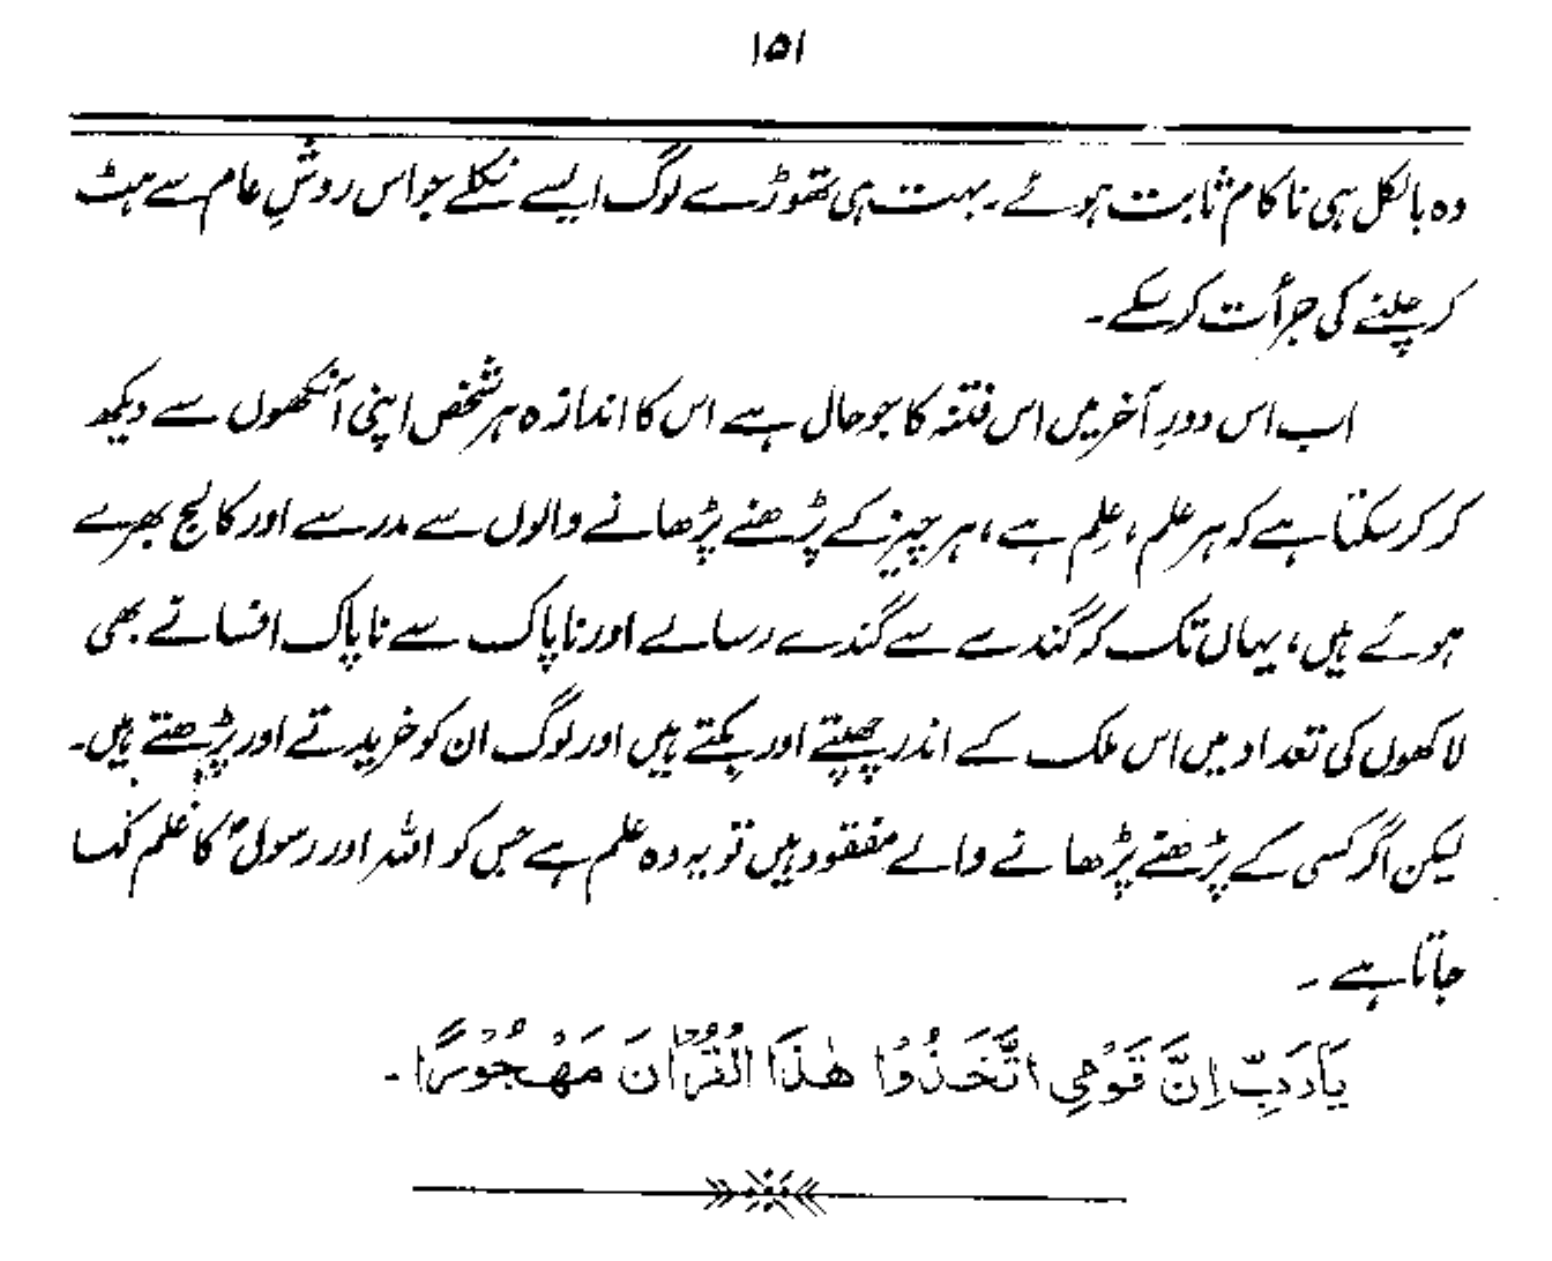 ۱۵۱
وہ بالکل ہی ناکام ثابت ہوئے۔ بہت ہی تھوڑے لوگ ایسے نکلے جو اس روشِ عام سے ہٹ
کر چلنے کی جرأت کر سکے۔
اب اس دورِ آخر میں اس فتنہ کا جو حال ہے اس کا اندازہ ہر شخص اپنی آنکھوں سے دیکھ
کر کر سکتا ہے کہ ہر علم، عِلم ہے، ہر چیز کے پڑھنے پڑھانے والوں سے مدرسے اور کالج بھرے
ہوئے ہیں، یہاں تک کہ گندے سے گندے رسالے اور ناپاک سے ناپاک افسانے بھی
لاکھوں کی تعداد میں اس ملک کے اندر چھپتے اور بِکتے ہیں اور لوگ ان کو خریدتے اور پڑھتے ہیں۔
لیکن اگر کسی کے پڑھنے پڑھانے والے مفقود ہیں تو یہ وہ علم ہے جس کو اللہ اور رسولؐ کا علم کہا
جاتا ہے ۔
يَارَبِّ اِنَّ قَوْمِي اتَّخَذُوْا هٰذَا الْقُرْاٰنَ مَهْجُوْرًا۔